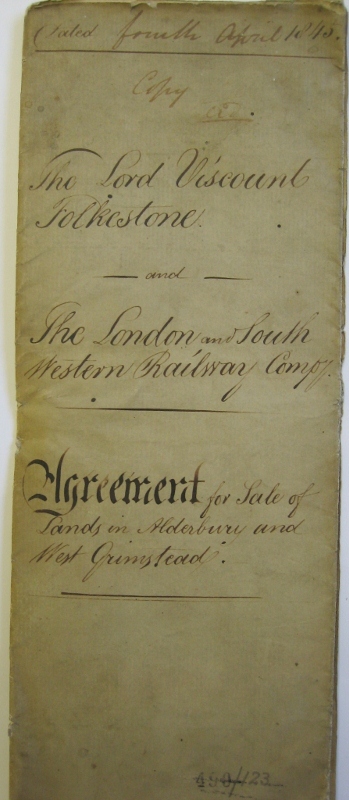 Dated fourth April 1845.
Copy
The Lord Viscount
Folkestone.
and
The London and South
Western Railway Compy.
Agreement for Sale of
Lands in Alderbury and
West Grimstead.
490/123